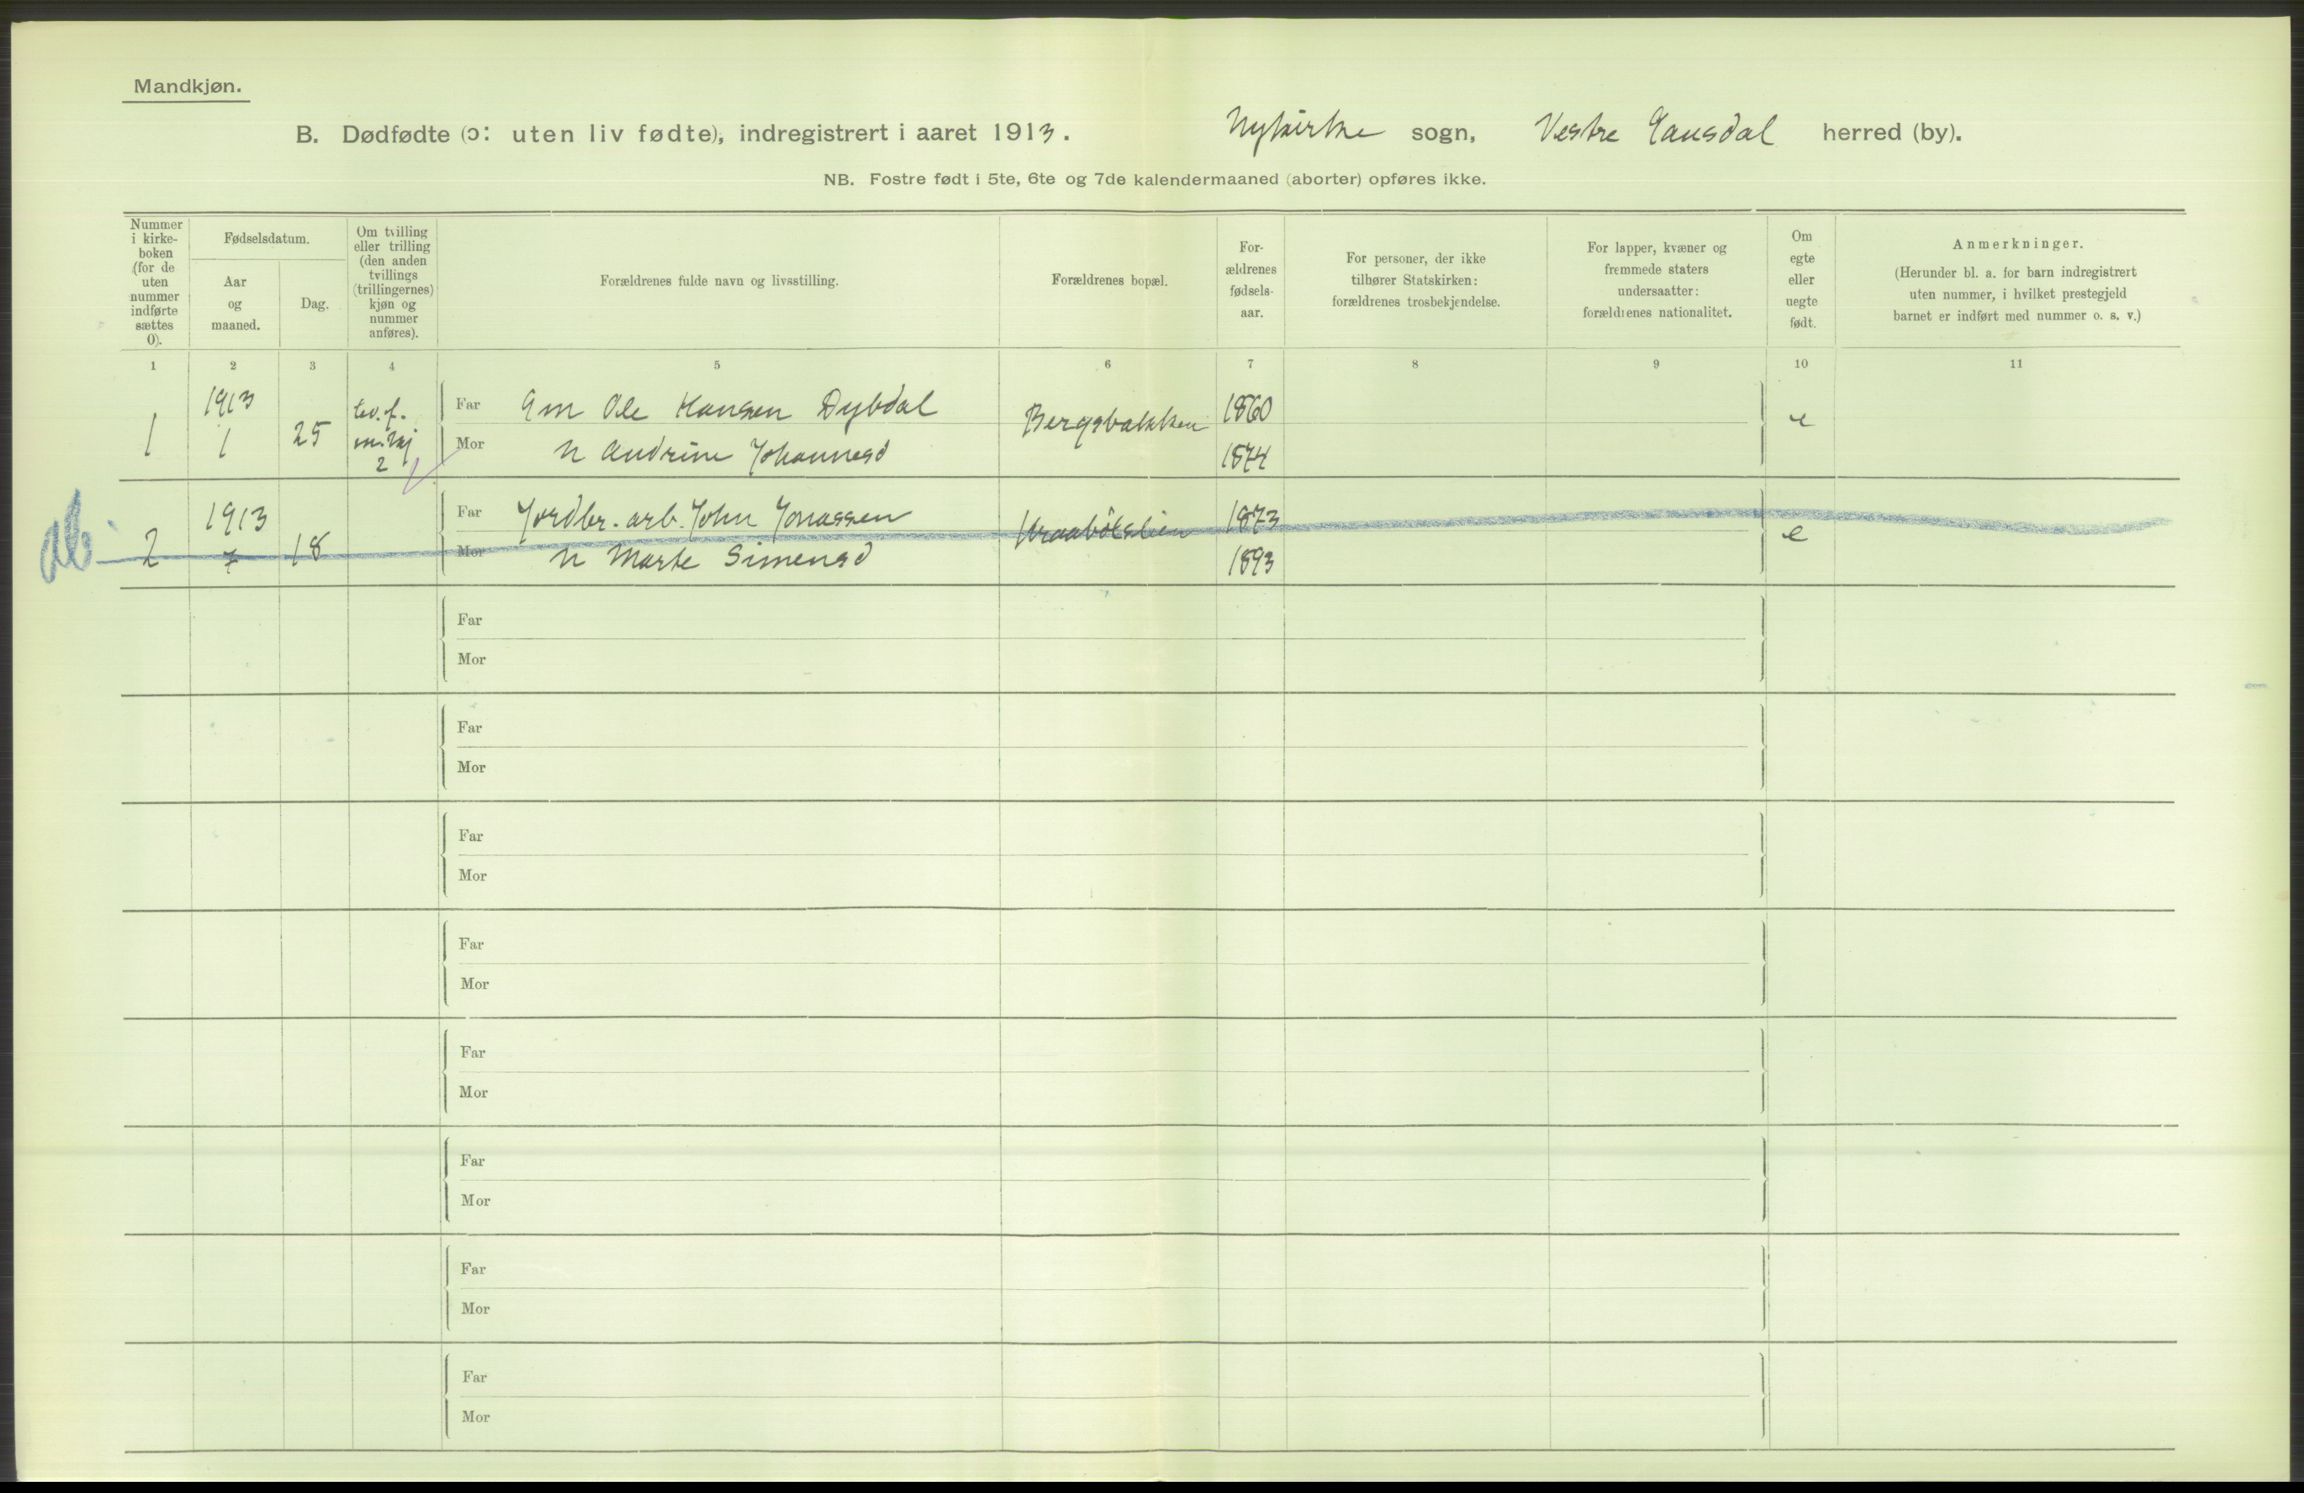 Mandkjøn.
B. Dødfødte (ɔ: uten liv fødte), indregistrert i aaret 1913. Nykirke sogn, Vestre Gausdal herred (by).
NB. Fostre født i 5te, 6te og 7de kalendermaaned (aborter) opføres ikke.
Nummer
i kirke-
boken
(for de
uten
nummer
indførte
sættes
0).
Fødselsdatum.
Aar
og
maaned.
Dag.
Om tvilling
eller trilling
(den anden
tvillings
(trillingernes)
kjøn og
nummer
anføres).
Forældrenes fulde navn og livsstilling.
Forældrenes bopæl.
For-
ældrenes
fødsels-
aar.
For personer, der ikke
tilhører Statskirken:
forældrenes trosbekjendelse.
For lapper, kvæner og
fremmede staters
undersaatter:
forældrenes nationalitet.
Om
egte
eller
uegte
født.
Anmerkninger.
(Herunder bl. a. for barn indregistrert
uten nummer, i hvilket prestegjeld
barnet er indført med nummer o. s. v.)
1 2 3 4 5 6 7 8 9 10 11
1 1913 1 25 lev. f.
m. kj
2
Far Gm Ole Hansen Dybdal Bergsbakken 1860 e
Mor H Andrine Johannesd 1874
ab. 2 1913 7 18
Far Jordbr. arb. John Jonassen Kraabölslien 1873 e
Mor H Marte Simensd 1893
Far
Mor
Far
Mor
Far
Mor
Far
Mor
Far
Mor
Far
Mor
Far
Mor
Far
Mor